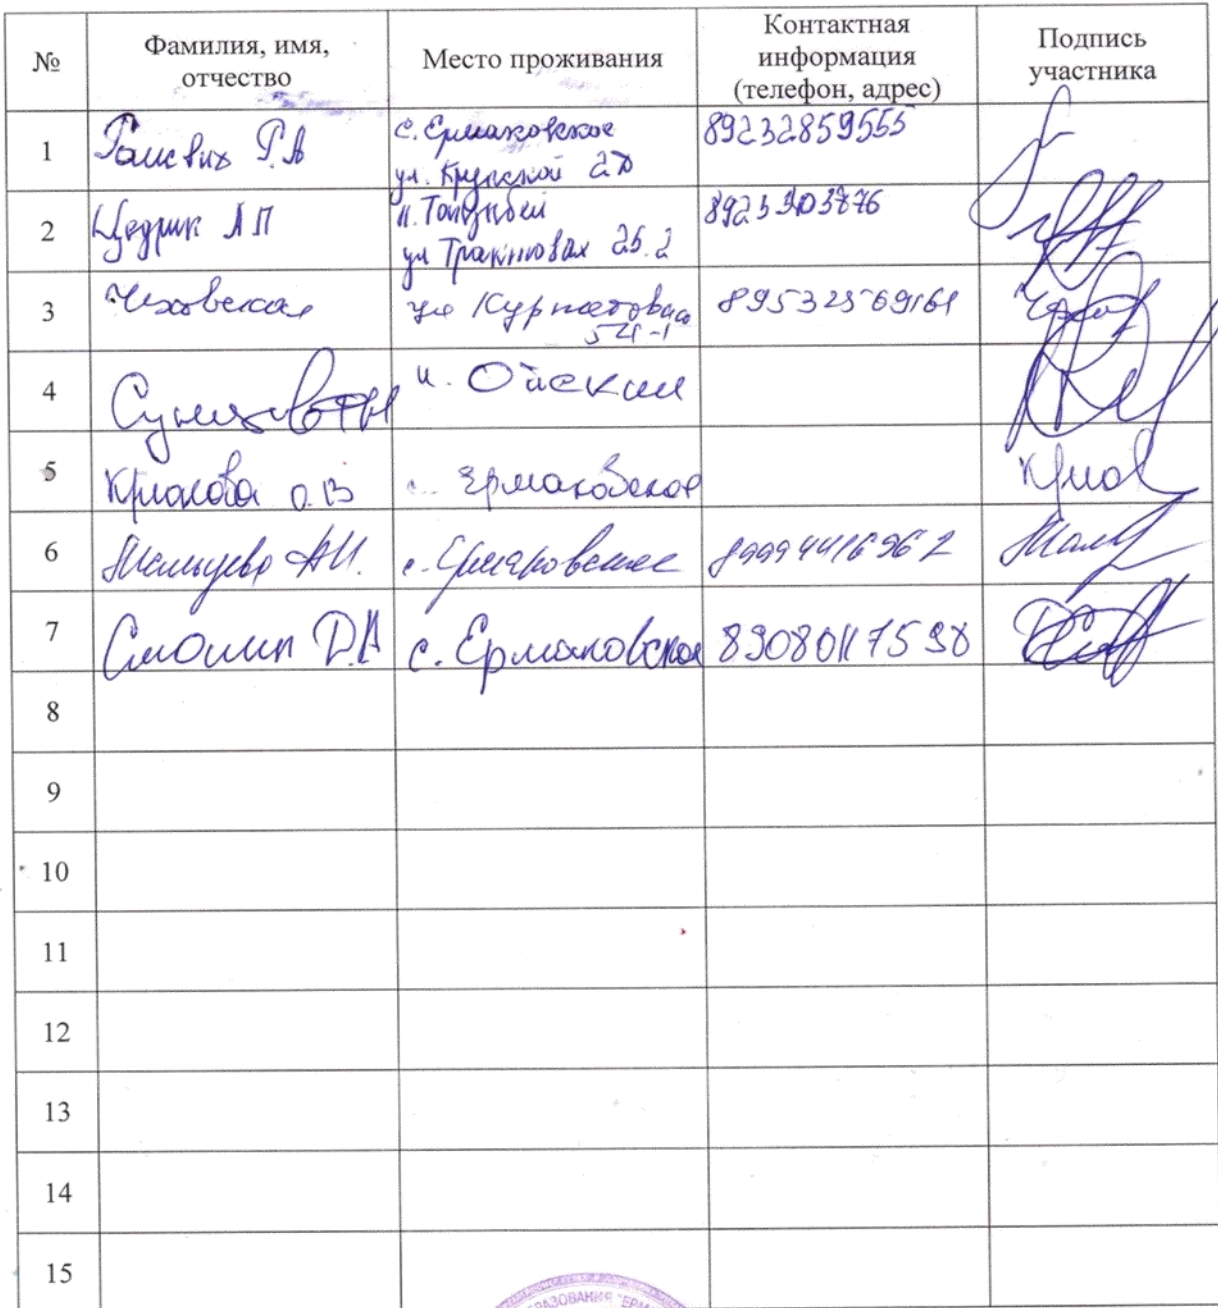 №
Фамилия, имя,
отчество
Место проживания
Контактная
информация
(телефон, адрес)
Подпись
участника
1
Р.А
с. Ермаковское
ул. Крупской 2Д
89232859555
2
Цедрик А П
п. Танзыбей
ул Трактовая 25.2
3
Чеховская
ул Курчатова
89532569161
4
п. Ойский
5
Крюкова О.В
с. Ермаковское
Крюк
6
А.И.
с. Ермаковское
89994416962
7
Смолин Д.А
с. Ермаковское
89080117598
8
9
10
11
12
13
14
15